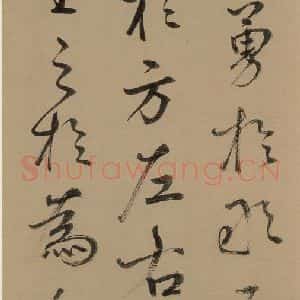 勇於敢
於方左右
生之於為
Shufawang.CN